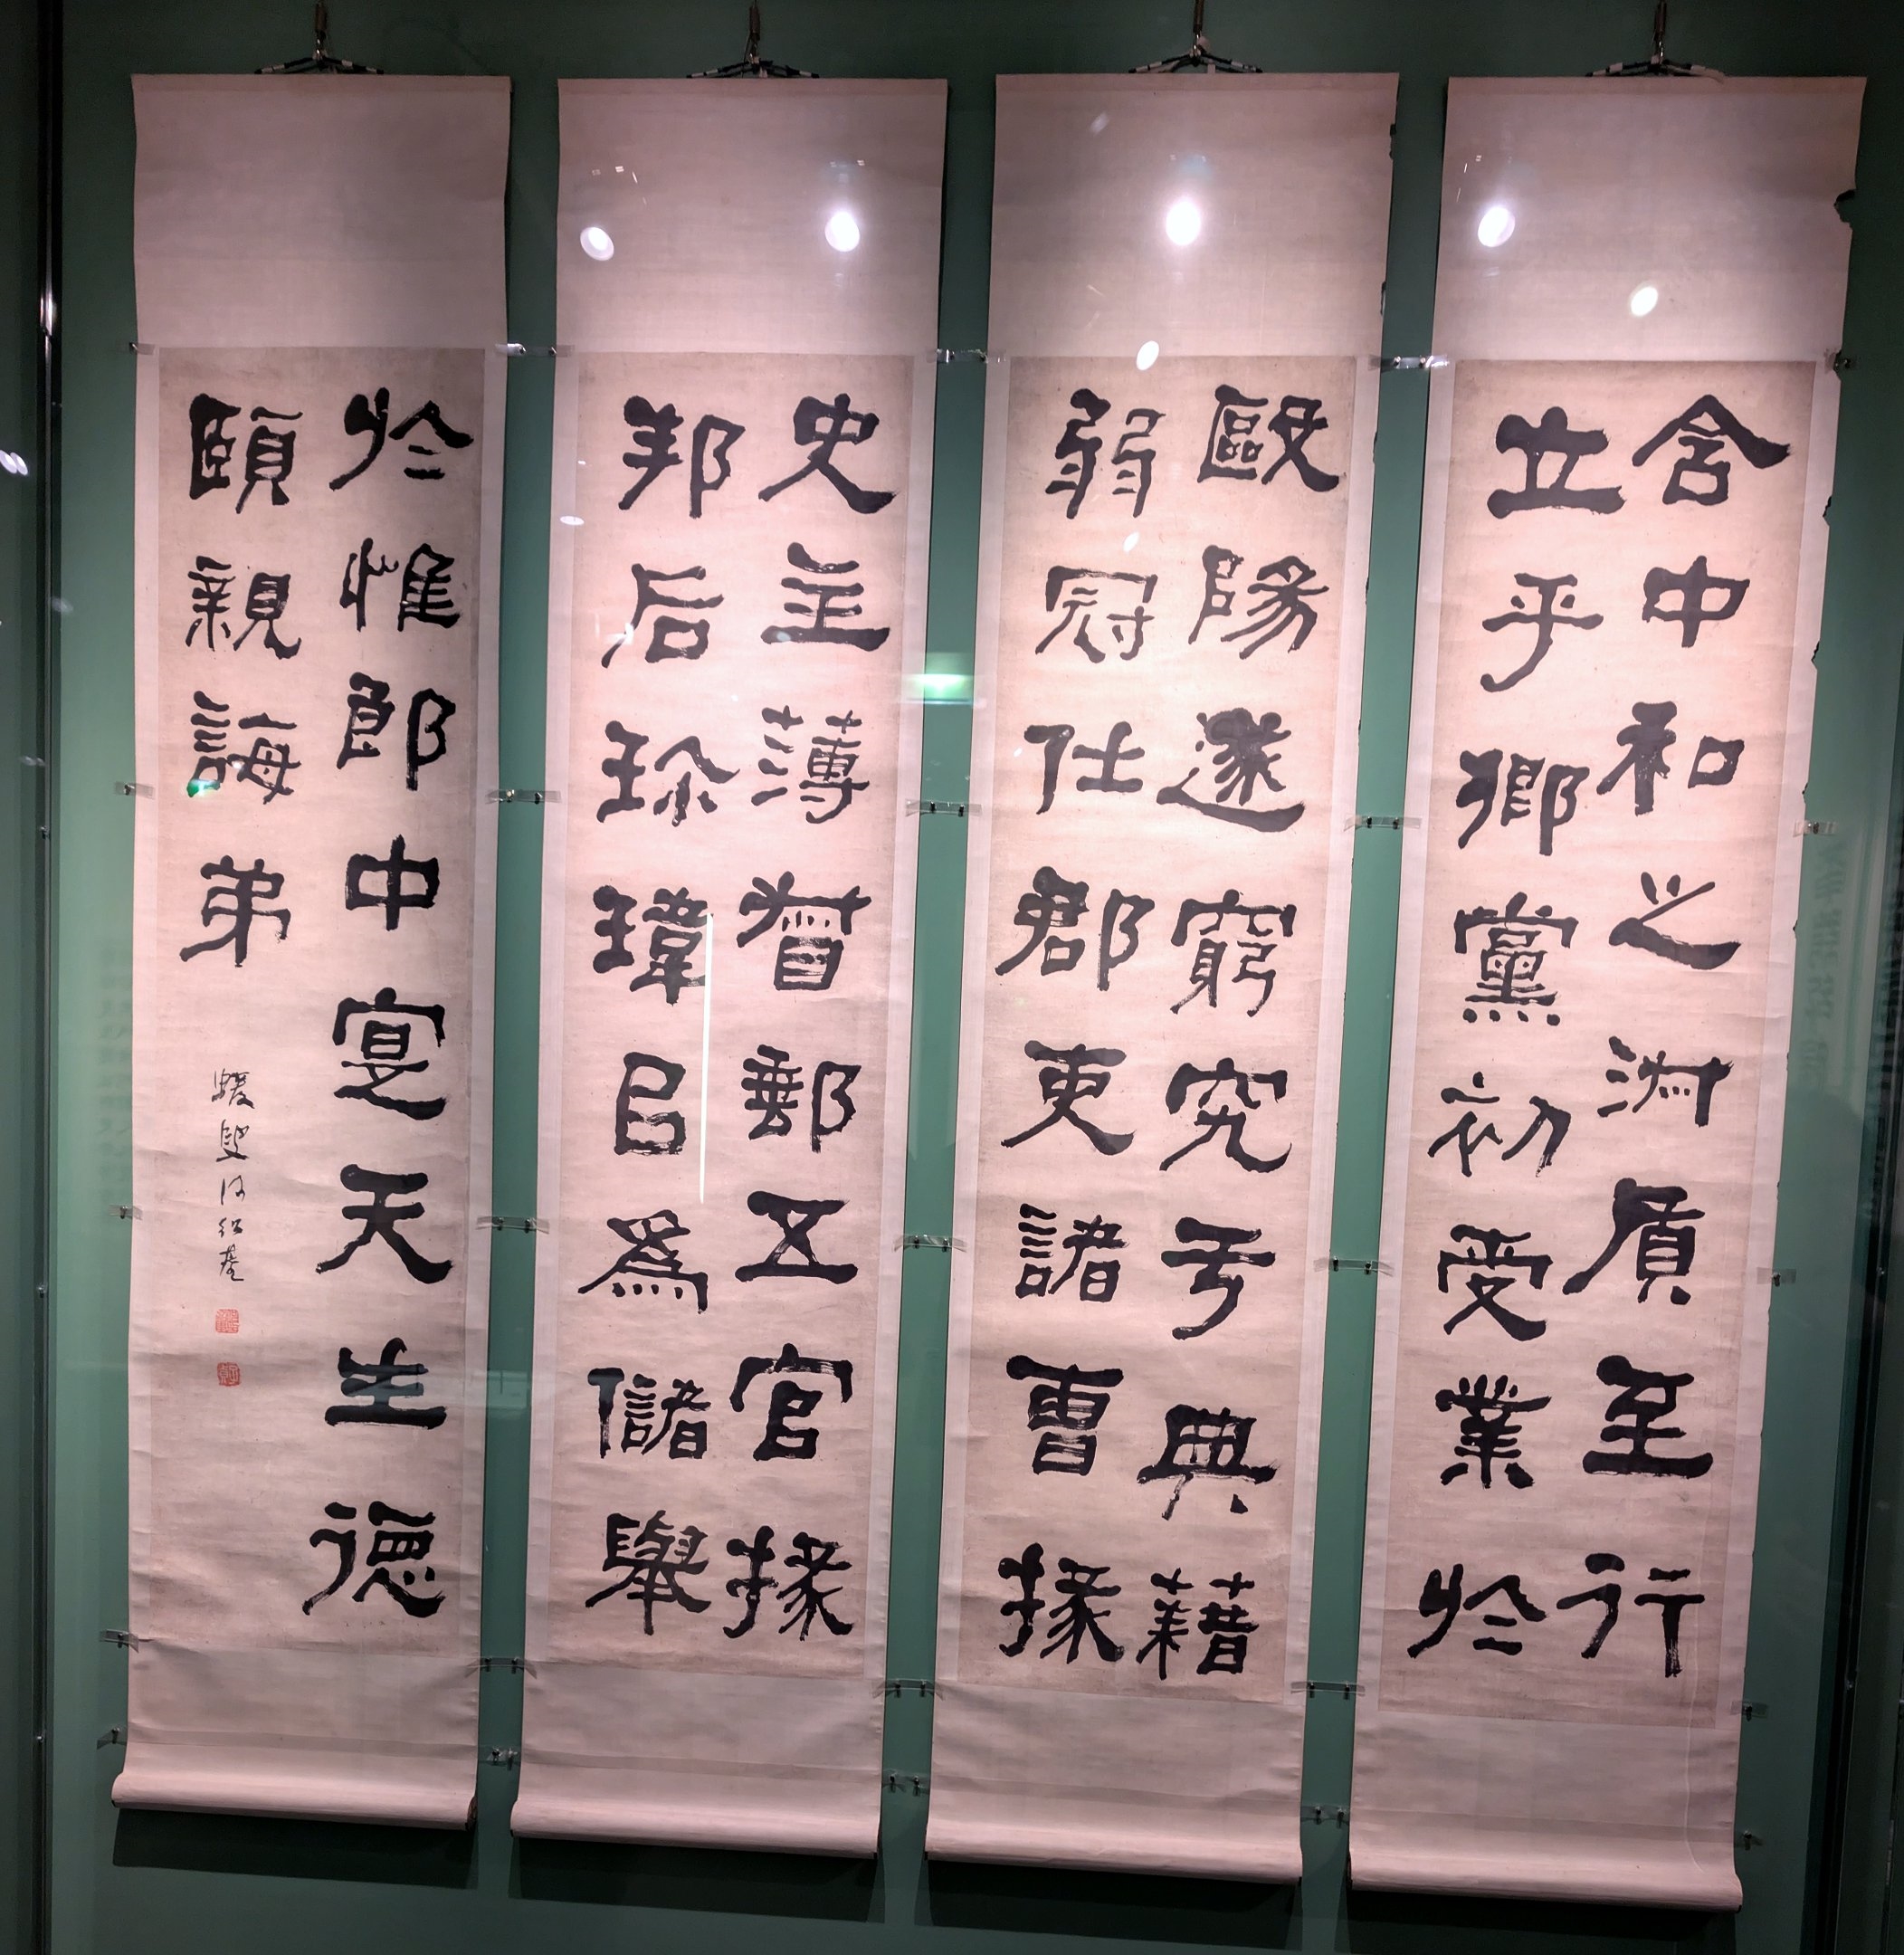 含中和之淑質至行
立乎鄉黨初受業於
毆陽遂窮究亏典藉
弱冠仕郡吏諸曹掾
史主薄督郵五官掾
邦后珍瑋㠯爲儲舉
於惟郎中寔天生德
頤親誨弟
蝯叟何紹基